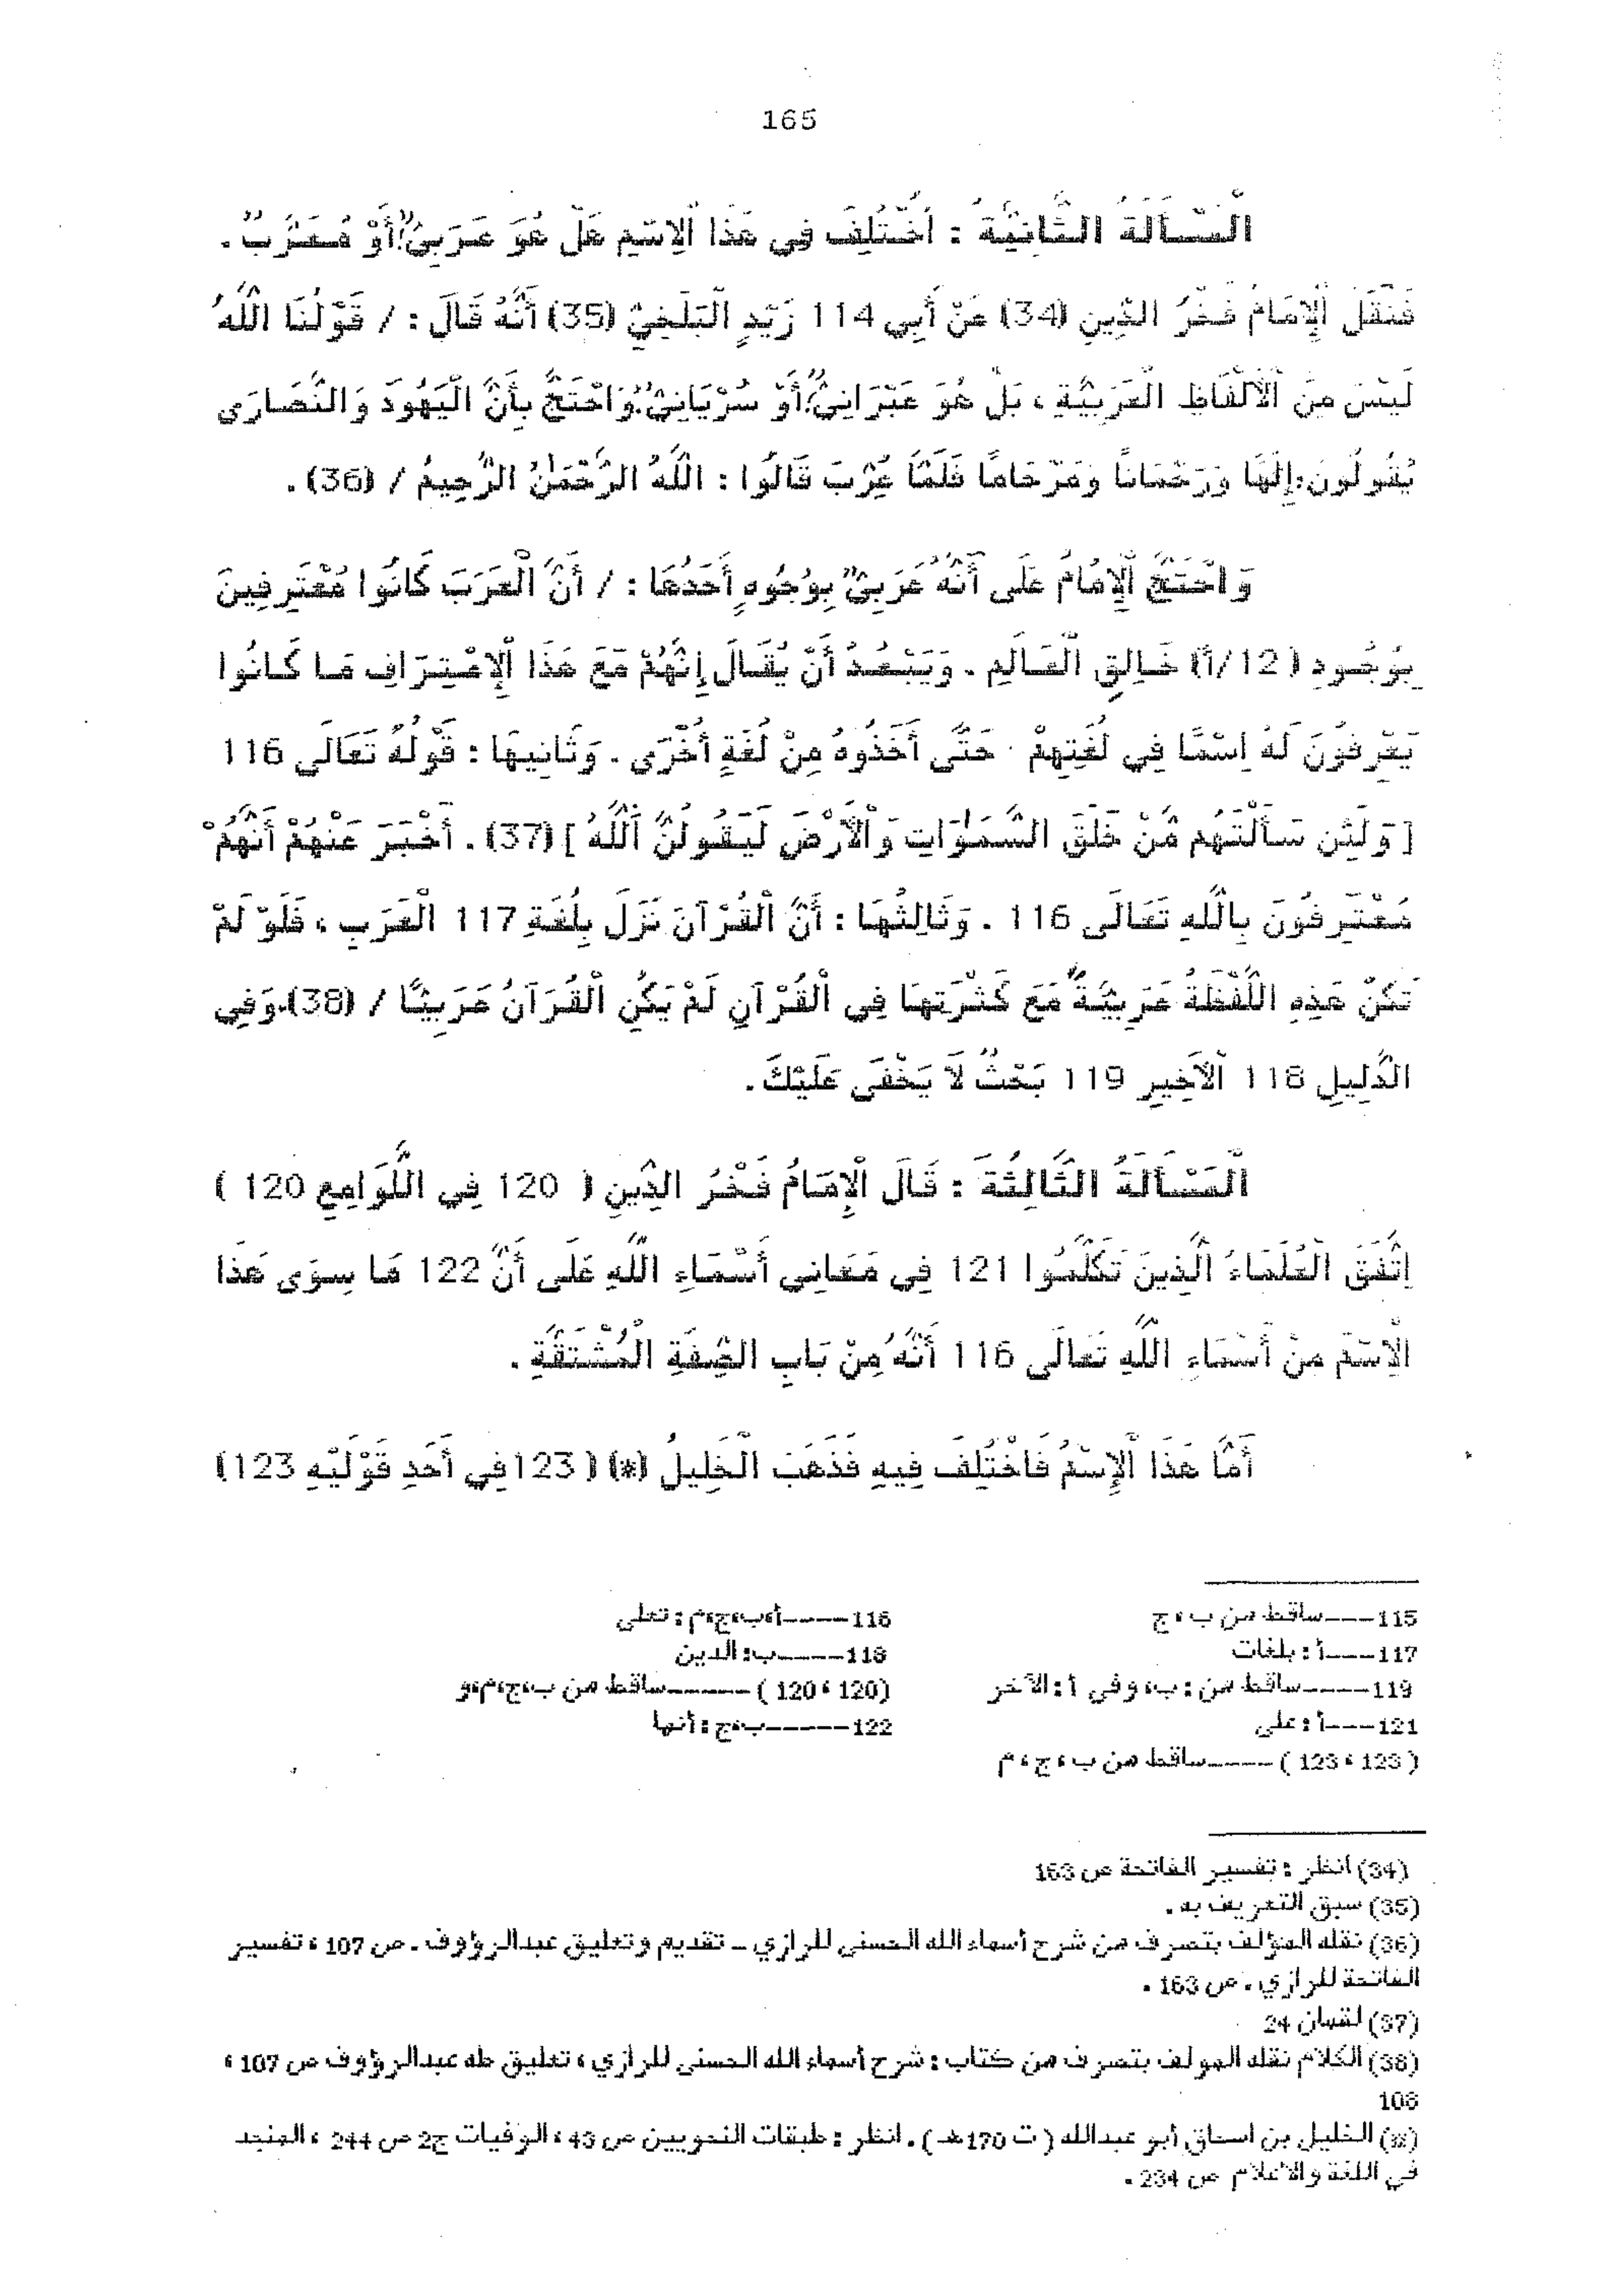 165
الْمَسْأَلَةُ الثَّانِيَّةُ : اُخْتُلِفَ فِي هَذَا الْاِسْمِ هَلْ هُوَ عَرَبِيٌّ؛ أَوْ مُعَرَّبٌ .
فَنَقَلَ الْإِمَامُ فَخْرُ الدِّينِ (34) عَنْ أَبِي 114 زَيْدٍ الْبَلْخِيِّ (35) أَنَّهُ قَالَ : / قَوْلُنَا اللَّهُ
لَيْسَ مِنَ الْأَلْفَاظِ الْعَرَبِيَّةِ ، بَلْ هُوَ عَبْرَانِيٌّ؛ أَوْ سُرْيَانِيٌّ؛ وَاحْتَجَّ بِأَنَّ الْيَهُودَ وَالنَّصَارَى
يَقُولُونَ: إِلَهَا وَرَحْمَانًا وَمَرْحَامًا فَلَمَّا عُرِّبَ قَالُوا : اللَّهُ الرَّحْمَنُ الرَّحِيمُ / (36) .
وَاحْتَجَّ الْإِمَامُ عَلَى أَنَّهُ عَرَبِيٌّ بِوُجُوهٍ أَحَدُهَا : / أَنَّ الْعَرَبَ كَانُوا مُعْتَرِفِينَ
بِوُجُودِ (12/أ) خَالِقِ الْعَالَمِ . وَيَبْعُدُ أَنْ يُقَالَ إِنَّهُمْ مَعَ هَذَا الْإِعْتِرَافِ مَا كَانُوا
يَعْرِفُونَ لَهُ اِسْمًا فِي لُغَتِهِمْ حَتَّى أَخَذُوهُ مِنْ لُغَةٍ أُخْرَى . وَثَانِيهَا : قَوْلُهُ تَعَالَى 116
[ وَلَئِن سَأَلْتَهُم مَّنْ خَلَقَ السَّمَوَاتِ وَالْأَرْضَ لَيَقُولُنَّ اللَّهُ ] (37) . أَخْبَرَ عَنْهُمْ أَنَّهُمْ
مُعْتَرِفُونَ بِاللَّهِ تَعَالَى 116 . وَثَالِثُهَا : أَنَّ الْقُرْآنَ نَزَلَ بِلُغَةِ 117 الْعَرَبِ ، فَلَوْ لَمْ
تَكُنْ هَذِهِ اللَّفْظَةُ عَرَبِيَّةً مَعَ كَثْرَتِهَا فِي الْقُرْآنِ لَمْ يَكُنِ الْقُرْآنُ عَرَبِيًّا / (38). وَفِي
الدَّلِيلِ 118 الْأَخِيرِ 119 بَحْثٌ لَا يَخْفَى عَلَيْكَ .
الْمَسْأَلَةُ الثَّالِثَةَ : قَالَ الْإِمَامُ فَخْرُ الدِّينِ ( 120 فِي اللَّوَامِعِ 120 )
اِتَّفَقَ الْعُلَمَاءُ الَّذِينَ تَكَلَّمُوا 121 فِي مَعَانِي أَسْمَاءِ اللَّهِ عَلَى أَنَّ 122 مَا سِوَى هَذَا
الْاِسْمَ مِنْ أَسْمَاءِ اللَّهِ تَعَالَى 116 أَنَّهُ مِنْ بَابِ الصِّفَةِ الْمُشْتَقَّةِ .
أَمَّا هَذَا الْإِسْمُ فَاخْتُلِفَ فِيهِ فَذَهَبَ الْخَلِيلُ (*) ( 123 فِي أَحَدِ قَوْلَيْهِ 123)
115---ساقط من ب ، ج
116-----أ،ب،ج،م : تعلى
117---أ : بلغات
118-----ب: الدين
119-----ساقط من : ب، وفي أ : الآخر
(120 ، 120 ) ------ساقط من ب،ج،م،و
121---أ : على
122------ب،ج : أنها
( 123 ، 123 ) -----ساقط من ب ، ج ، م
(34) انظر : تفسير الفاتحة ص 163
(35) سبق التعريف به .
(36) نقله المؤلف بتصرف من شرح أسماء الله الحسنى للرازي - تقديم وتعليق عبدالرؤوف . ص 107 ، تفسير
الفاتحة للرازي . ص 163 .
(37) لقمان 24
(38) الكلام نقله المولف بتصرف من كتاب : شرح أسماء الله الحسنى للرازي ، تعليق طه عبدالرؤوف ص 107 ،
108
(*) الخليل بن اسحاق أبو عبدالله ( ت 170 هـ ) . انظر : طبقات النحويين ص 43 ، الوفيات ج2 ص 244 ، المنجد
في اللغة والأعلام ص 234 .